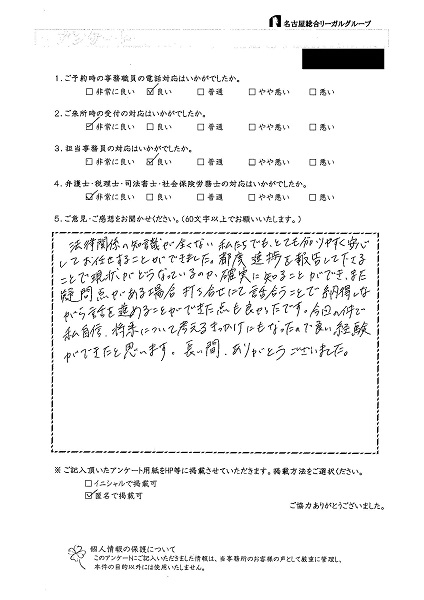 名古屋総合リーガルグループ
1．ご予約時の事務職員の電話対応はいかがでしたか。
□非常に良い ☑良い □普通 □やや悪い □悪い
2．ご来所時の受付の対応はいかがでしたか。
☑非常に良い □良い □普通 □やや悪い □悪い
3．担当事務員の対応はいかがでしたか。
□非常に良い ☑良い □普通 □やや悪い □悪い
4．弁護士・税理士・司法書士・社会保険労務士の対応はいかがでしたか。
☑非常に良い □良い □普通 □やや悪い □悪い
5．ご意見・ご感想をお聞かせください。（60文字以上でお願いいたします。）
法律関係の知識が全くない私たちでも、とても分りやすく安心
してお任せすることができました。都度進捗を報告して下さる
ことで現状がどうなっているのか、確実に知ることができ、また
疑問点がある場合打ち合せにて話合うことで納得しな
がら話を進めることができた点も良かったです。今回の件で
私自信、将来について考えるきっかけにもなったので良い経験
ができたと思います。長い間、ありがとうございました。
※ ご記入頂いたアンケート用紙をHP等に掲載させていただきます。掲載方法をご選択ください。
□イニシャルで掲載可
☑匿名で掲載可
ご協力ありがとうございました。
個人情報の保護について
このアンケートにご記入いただきました情報は、当事務所のお客様の声として厳重に管理し、
本件の目的以外には使用いたしません。